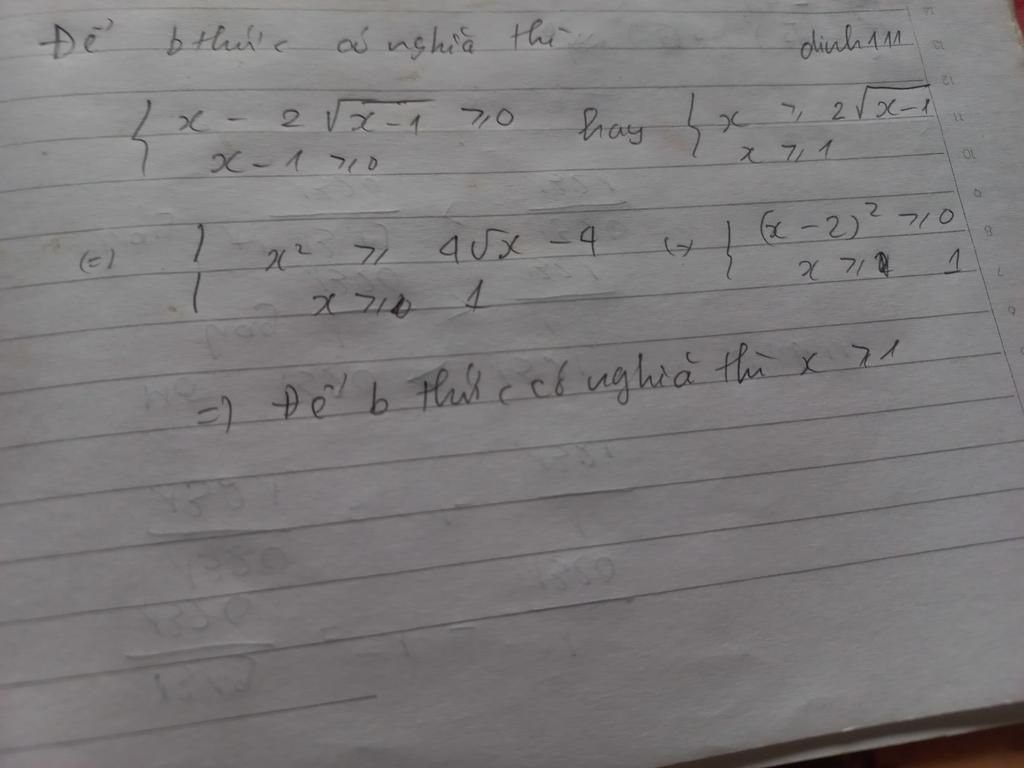 Để bthức có nghĩa thì dinh111
{ x - 2√(x-1) ≥ 0 hay { x ≥ 2√(x-1)
x - 1 ≥ 0 x ≥ 1
(=) { x² ≥ 4√x - 4 (-) { (x - 2)² ≥ 0
x ≥ 1 x ≥ 1
=) Để b thức có nghĩa thì x ≥ 1